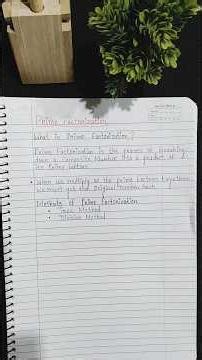 Prime Factorization
What is Prime Factorization?
Prime Factorization is the process of breaking
down a Composite Number into a product of
its Prime factors
• When we multiply all the prime factors together
we must get the original number back
Methods of Prime Factorization
• Tree Method
• Division Method